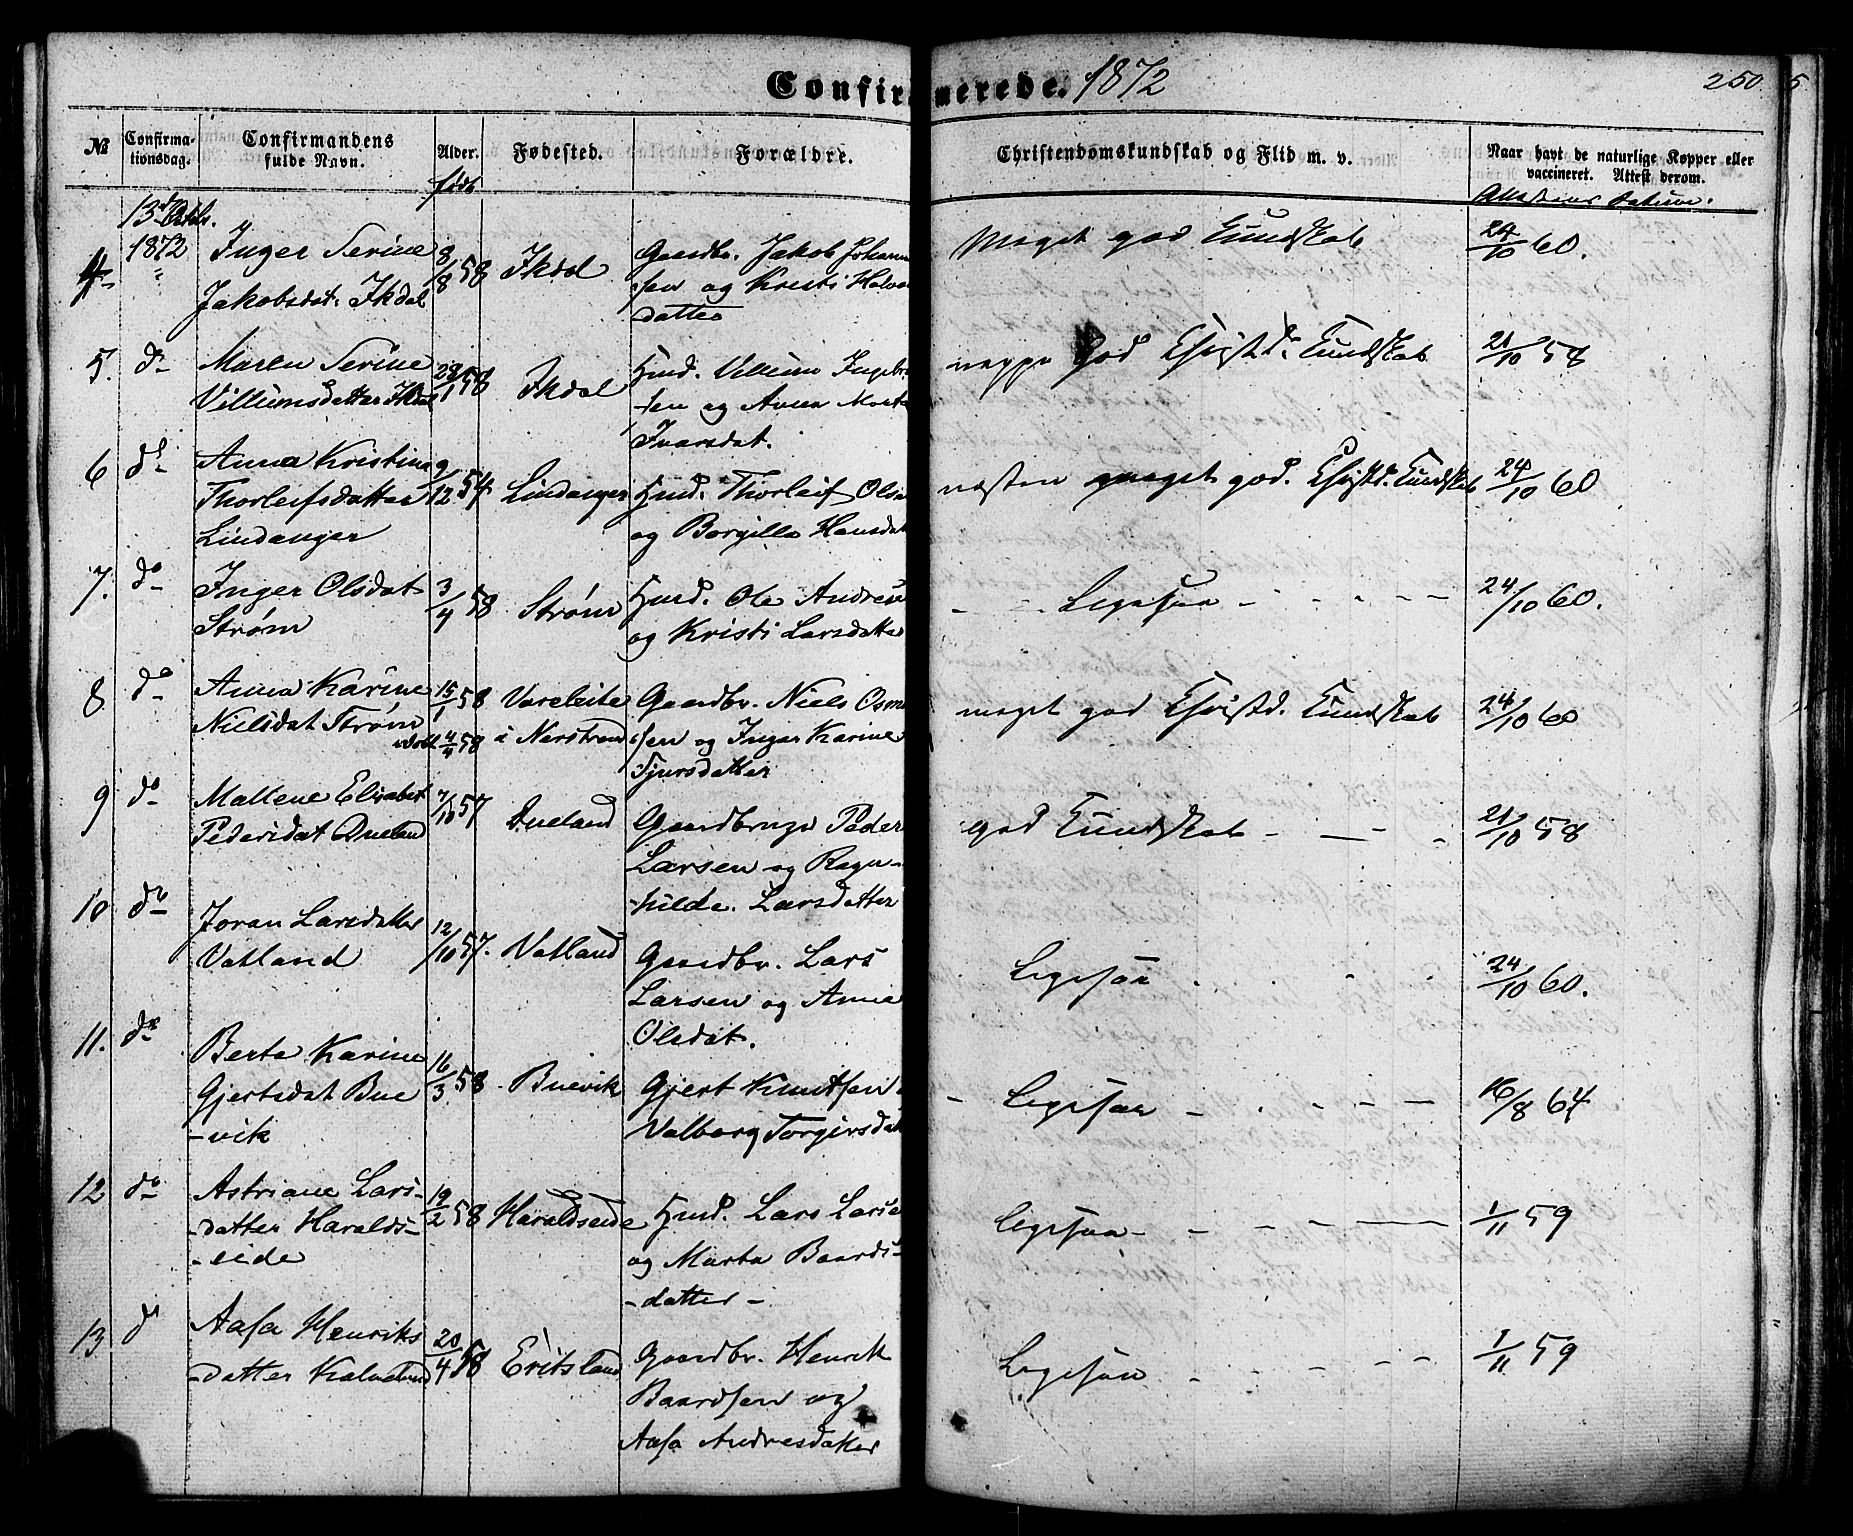 Confirmerede. 1872
250
№ Confirmationsdag. Confirmandens fulde Navn. Alder. Fødested. Forældre. Christendomskundskab og Flid m. v. Naar havt de naturlige Kopper eller vaccineret. Attest derom.
født
Attestens Datum.
13de Octbr. 1872
4 " Inger Serine Jakobsdat. Ikdal 8/8 58 Ikdal Gaardbr. Jakob Johannesen og Kristi Halvorsdatter Meget god Kundskab 24/10 60.
5. do Maren Serine Villumsdatter Ikdal 28/1 58 Ikdal Hmd. Villum Ingebr sen og Anna Marta Ivarsdat. neppe god Christd. Kundskab 21/10 58
6 do Anna Kristina Thorleifsdatter Lindanger 9/12 54 Lindanger Hmd. Thorleif Olsen og Borgilla Hansdat næsten meget god. Christd. Kundskab 24/10 60
7. do Inger Olsdat Strøm 3/4 58 Strøm Hmd. Ole Andresen og Kristi Larsdatter - Ligesaa - 24/10 60.
8 do Anna Karine Nielsdat Strøm 15/1 58 døbt 4/4 58 Vareleite i Nerstrand Gaardbr. Niels Osmundsen og Inger Karine Sjursdatter meget god Christd. Kundskab 24/10 60
9 do Mallene Elisabet Pedersdat Dueland 7/10 57 Dueland Gaardbruger Peder Larsen og Ragnhilde Larsdatter god Kundskab - 21/10 58
10 do Joran Larsdatter Vatland 12/10 57. Vatland Gaardbr. Lars Larsen og Anne Olsdat. Ligesaa 24/10 60.
11. do Berta Karine Gjertsdat Bue-vik 16/3 58 Buevik Gjert Knutsen Valborg Torgersdat - Ligesaa - 16/8 64
12 do Astriane Lars-datter Haralds-eide 19/2 58 Haraldseide Hmd. Lars Larsen og Marta Baards-datter - Ligesaa - 1/11 59
13 do Aasa Henriks-datter 20/4 58 Eritsland Gaardbr. Henrik Baardsen og Aasa Andresdatter Ligesaa - 1/11 59